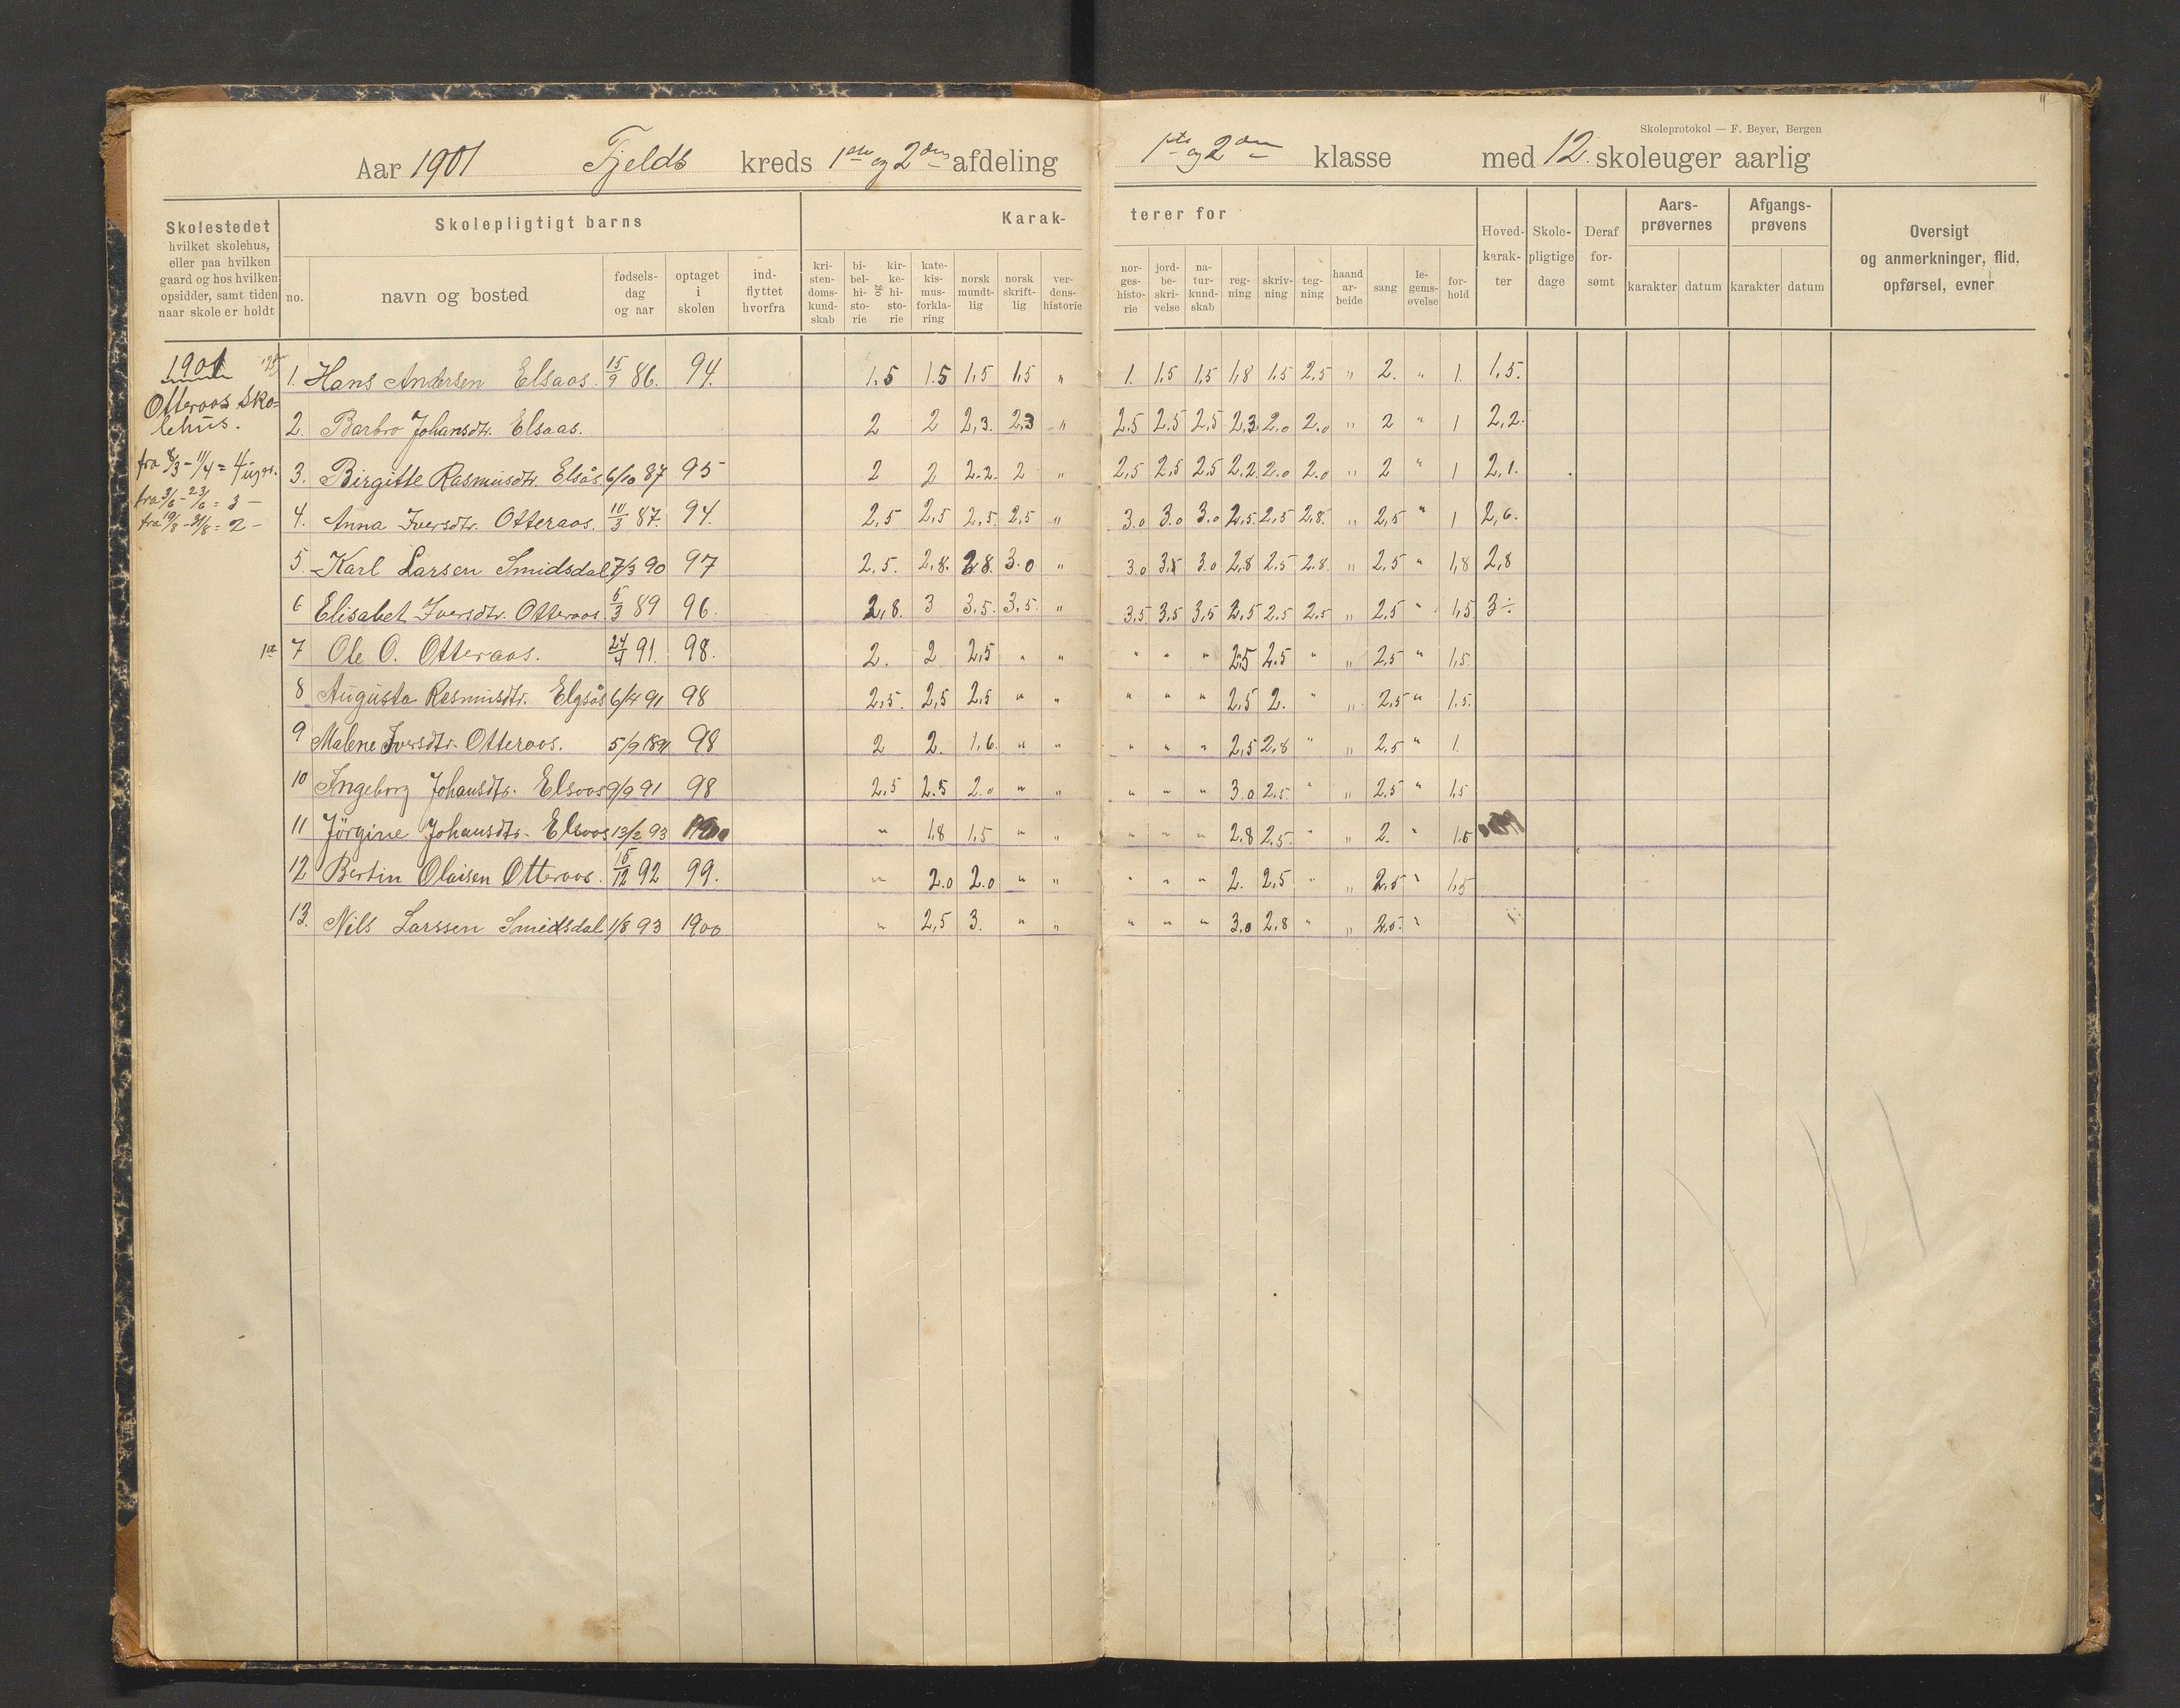 Skoleprotokol — F. Beyer, Bergen
Aar 1901 Fjelds kreds 1ste og 2den afdeling 1ste og 2den klasse med 12 skoleuger aarlig
Skolestedet
hvilket skolehus,
eller paa hvilken
gaard og hos hvilken
opsidder, samt tiden
naar skole er holdt
Skolepligtigt barns
no. navn og bosted
fødsels-
dag
og aar
optaget
i
skolen
ind-
flyttet
hvorfra
Karak-
terer for
kri-
sten-
doms-
kund-
skab
bi-
bel-
hi-
sto-
rie
og
kir-
ke-
hi-
sto-
rie
kate-
kis-
mus-
forkla-
ring
norsk
mundt-
lig
norsk
skrift-
lig
ver-
dens-
historie
nor-
ges-
histo-
rie
jord-
be-
skri-
velse
na-
tur-
kund-
skab
reg-
ning
skriv-
ning
teg-
ning
haand
ar-
beide
sang
le-
gems-
øvelse
for-
hold
Hoved-
karak-
ter
Skole-
pligtige
dage
Deraf
for-
sømt
Aars-
prøvernes
karakter datum
Afgangs-
prøvens
karakter datum
Oversigt
og anmerkninger, flid,
opførsel, evner
1901
Otteraas Sko=
lehus.
fra 8/3 - 11/4 = 4 uger.
fra 3/6 - 23/6 = 3 —
fra 19/8 - 31/8 = 2 —
1. Hans Andersen Elsaas. 15/9 86. 94. 1.5 1.5 1,5 1,5 " 1. 1,5 1,5 1,8 1.5 2,5 " 2. " 1. 1,5.
2. Barbro Johansdtr. Elsaas. 2 2 2,3. 2,3 " 2.5 2.5 2,5 2,3 2.0 2.0 " 2 " 1 2,2.
3. Birgitte Rasmusdtr. Elsås 6/10 87 95 2 2 2.2. 2 " 2,5 2,5 2,5 2.2. 2.0 2.0 " 2 " 1 2,1.
4. Anna Iversdtr. Otteraas. 11/3 87. 94. 2,5 2,5 2,5. 2,5 " 3.0 3.0 3.0 2,5. 2,5 2,8. " 2,5 " 1 2,6.
5. Karl Larsen Smidsdal 7/3 90 97 2.5. 2,8. 2.8. 3.0 " 3.0 3,5 3.0 2,8 2.5 2.8. " 2,5 " 1,8 2,8
6 Elisabet Iversdtr. Otteraas. 5/3 89 96. 2,8. 3 3.5. 3,5. " 3,5. 3,5 3,5 2,5 2.5 2,5 " 2,5 " 1,5 3÷
1ste 7 Ole O. Otteraas. 24/4 91. 98. 2. 2 2,5 " " " " " 2,5 2.5 " " 2.5 " 1,5.
8 Augusta Rasmusdtr. Elgsås 6/4 91 98 2,5. 2,5 2,5 " " " " " 2,5 2. " " 2,5 " 1.5.
9 Malene Iversdtr. Otteraas. 5/9 1891 98 2 2. 1.6. " " " " " 2,5 2,8 " " 2,5 " 1.
10 Ingeborg Johansdtr. Elsaas 9/9 91 98 2,5 2.5 2.0 " " " " " 3.0 2.5. " " 2.5 " 1,5
11 Jörgine Johansdtr. Elsaas 13/2 93 1900 " 1,8 1.5 " " " " " 2.8 2,5. " " 2. " 1.5
12 Bertin Olaisen Otteraas. 15/12 92 99. " 2.0 2.0 " " " " " 2. 2,5 " " 2.5 " 1,5
13. Nils Larssen Smidsdal. 1/8 93 1900 " 2,5 3. " " " " " 3.0 2,8 " " 2.5. "